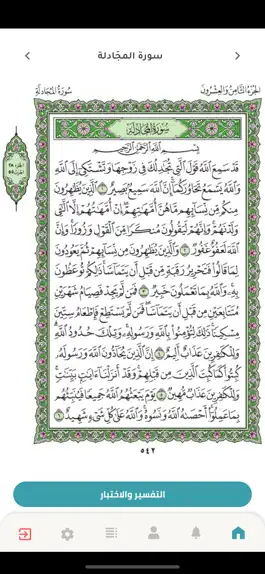 سورة المجَادلة
الجُزءُ الثَّامِنُ وَالعِشْرُونَ
سُورَةُ المُجَادلَةِ
سُورَةُ المُجَادلَةِ
بِسْمِ اللَّهِ الرَّحْمَٰنِ الرَّحِيمِ
قَدْ سَمِعَ اللَّهُ قَوْلَ الَّتِي تُجَادِلُكَ فِي زَوْجِهَا وَتَشْتَكِي إِلَى اللَّهِ
وَاللَّهُ يَسْمَعُ تَحَاوُرَكُمَا إِنَّ اللَّهَ سَمِيعٌ بَصِيرٌ ١ الَّذِينَ يُظَاهِرُونَ
مِنكُم مِّن نِّسَائِهِم مَّا هُنَّ أُمَّهَاتِهِمْ إِنْ أُمَّهَاتُهُمْ إِلَّا الَّٰئِي
وَلَدْنَهُمْ وَإِنَّهُمْ لَيَقُولُونَ مُنكَرًا مِّنَ الْقَوْلِ وَزُورًا وَإِنَّ
اللَّهَ لَعَفُوٌّ غَفُورٌ ٢ وَالَّذِينَ يُظَاهِرُونَ مِن نِّسَائِهِمْ ثُمَّ يَعُودُونَ
لِمَا قَالُوا فَتَحْرِيرُ رَقَبَةٍ مِّن قَبْلِ أَن يَتَمَاسَّا ذَٰلِكُمْ تُوعَظُونَ
بِهِ وَاللَّهُ بِمَا تَعْمَلُونَ خَبِيرٌ ٣ فَمَن لَّمْ يَجِدْ فَصِيَامُ شَهْرَيْنِ
مُتَتَابِعَيْنِ مِن قَبْلِ أَن يَتَمَاسَّا فَمَن لَّمْ يَسْتَطِعْ فَإِطْعَامُ سِتِّينَ
مِسْكِينًا ذَٰلِكَ لِتُؤْمِنُوا بِاللَّهِ وَرَسُولِهِ وَتِلْكَ حُدُودُ اللَّهِ
وَلِلْكَافِرِينَ عَذَابٌ أَلِيمٌ ٤ إِنَّ الَّذِينَ يُحَادُّونَ اللَّهَ وَرَسُولَهُ
كُبِتُوا كَمَا كُبِتَ الَّذِينَ مِن قَبْلِهِمْ وَقَدْ أَنزَلْنَا آيَاتٍ بَيِّنَاتٍ
وَلِلْكَافِرِينَ عَذَابٌ مُّهِينٌ ٥ يَوْمَ يَبْعَثُهُمُ اللَّهُ جَمِيعًا فَيُنَبِّئُهُم
بِمَا عَمِلُوا أَحْصَاهُ اللَّهُ وَنَسُوهُ وَاللَّهُ عَلَىٰ كُلِّ شَيْءٍ شَهِيدٌ ٦
٥٤٢
التفسير والاختبار